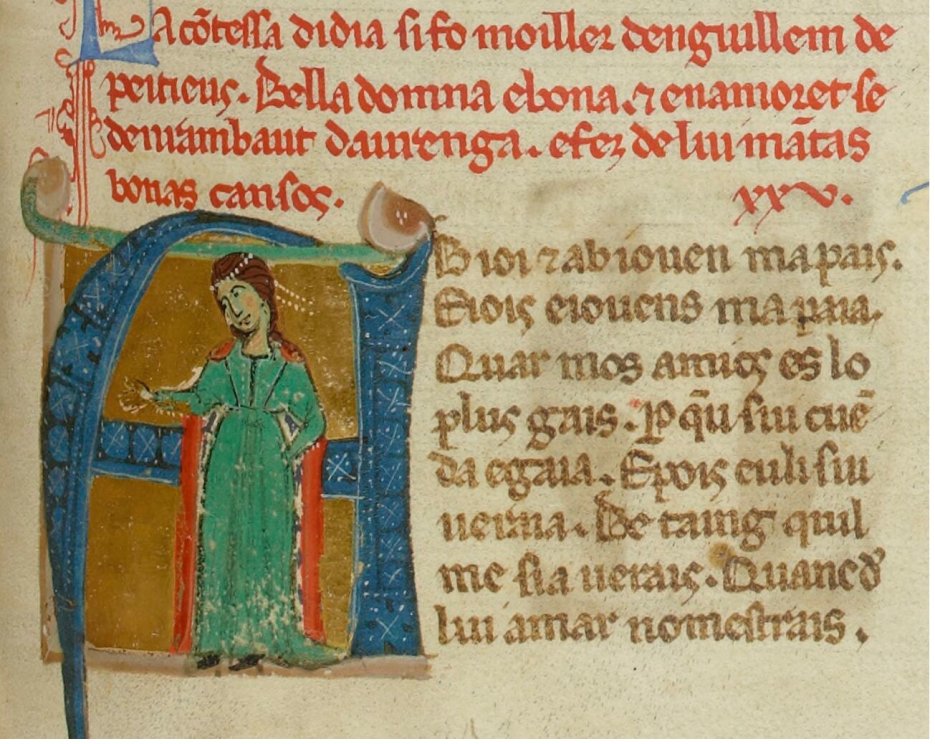 La cõtessa didia si fo moiller denguillem de
peitieus. Bella domna ebona. ⁊ enamoret se
denrambaut daurenga. efez de lui mãtas
bonas cansos. xxv.
Ab ioi ⁊ab iouen mapais.
Eiois eiouens mapaia.
Quar mos amics es lo
plus gais. P qũ sui cuẽ
da egaia. Epois eu li sui
ueraia. Be taing quil
me sia uerais. Quanc d̓
lui amar nomestrais.